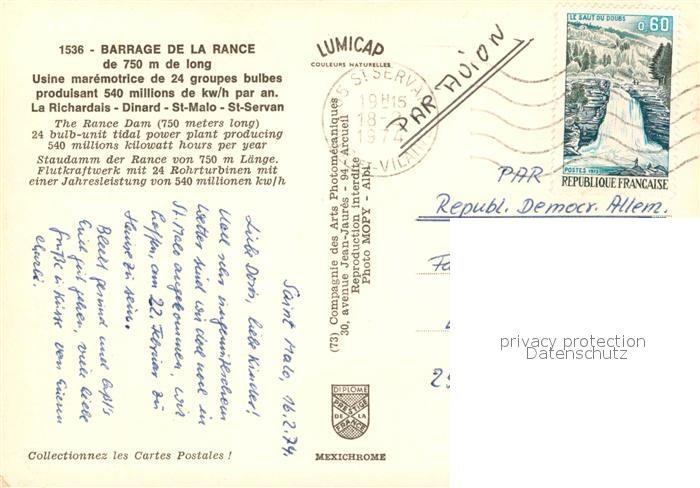 1536 - BARRAGE DE LA RANCE
de 750 m de long
Usine marémotrice de 24 groupes bulbes
produisant 540 millions de kw/h par an.
La Richardais - Dinard - St-Malo - St-Servan
The Rance Dam (750 meters long)
24 bulb-unit tidal power plant producing
540 millions kilowatt hours per year
Staudamm der Rance von 750 m Länge.
Flutkraftwerk mit 24 Rohrturbinen mit
einer Jahresleistung von 540 millionen kw/h
LUMICAP
COULEURS NATURELLES
ST SERVAN
19H15
18-
1974
VILAINE
PAR AVION
LE SAUT DU DOUBS
0,60
POSTES 1973
REPUBLIQUE FRANÇAISE
PAR
Republ. Democr. Allem.
Saint Malo, 16.2.74.
Liebe Doris, liebe Kinder!
Nach sehr ungemütlichem
Wetter sind wir doch noch in
St. Malo angekommen, wir
hoffen, am 22. Februar zu
Hause zu sein.
Bleibt gesund und laßt's
Euch gut gehen, viele liebe
Grüße u. Küsse von Eurem
(73) Compagnie des Arts Photomécaniques
30, avenue Jean-Jaurès - 94 - Arcueil
Reproduction interdite
Photo MOPY - Albi
privacy protection
Datenschutz
DIPLOME
PRESTIGE
DE LA
FRANCE
Collectionnez les Cartes Postales !
MEXICHROME